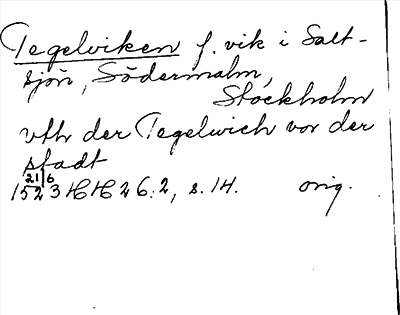 Tegelviken f. vik i Salt-
sjön, Södermalm,
Stockholm
vth der Tegelwich vor der
stadt
21/6
1523 HH 26:2, s. 14. orig.